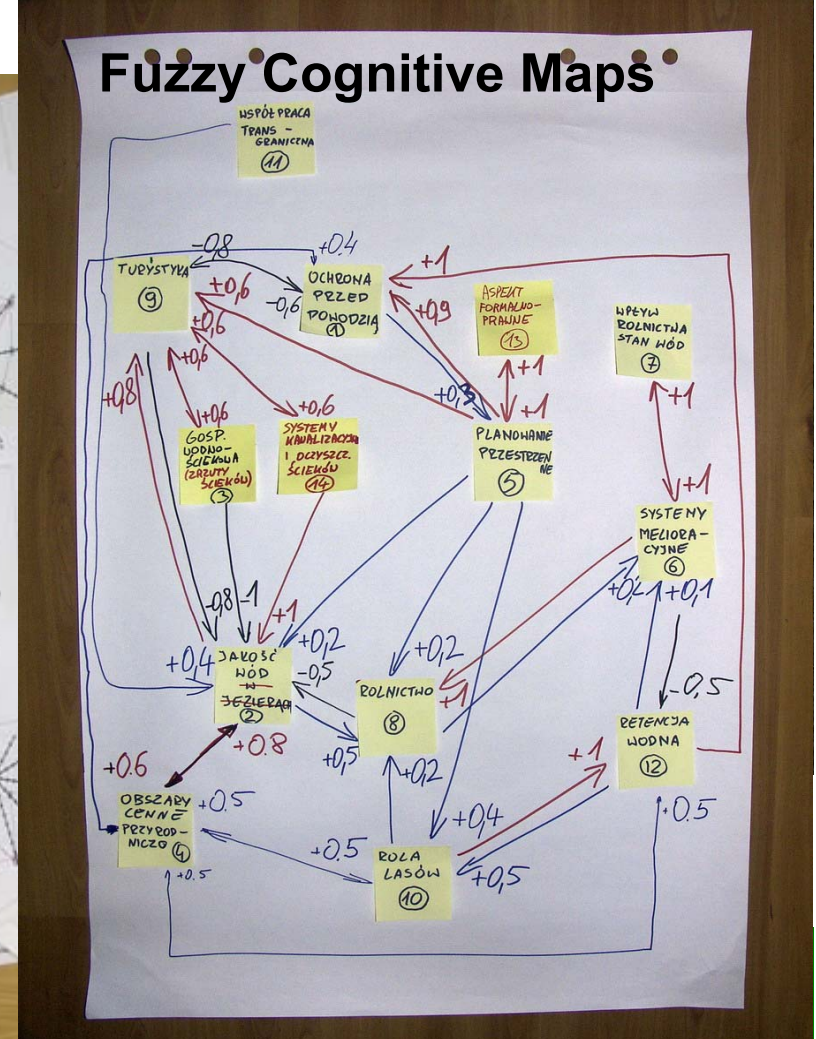 Fuzzy Cognitive Maps
WSPÓŁPRACA
TRANS -
GRANICZNA
11
-0,8
+0.4
TURYSTYKA
9
-0,6
OCHRONA
PRZED
POWODZIĄ
1
+1
+0,9
+0,6
+0,6
+0,6
+0,8
ASPEKT
FORMALNO-
PRAWNE
13
WPŁYW
ROLNICTWA
STAN WÓD
7
+1
+1
+1
+1
+0,6
+0,6
GOSP.
WODNO-
ŚCIEKOWA
(ZRZUTY
ŚCIEKÓW)
3
SYSTEMY
I OCZYSZCZ.
ŚCIEKÓW
14
PLANOWANIE
PRZESTRZEN
NE
5
SYSTEMY
MELIORA-
CYJNE
6
+0,1
-0,8
-1
+1
+0,2
+0,4
JAKOŚĆ
WÓD
W
JEZIORACH
2
-0,5
+0,5
+0,2
ROLNICTWO
8
+1
-0,5
RETENCJA
WODNA
12
+0.8
+0.6
OBSZARY
CENNE
PRZYROD-
NICZO
4
+0.5
+0.5
+0,2
+0.5
ROLA
LASÓW
10
+0,4
+0,5
+1
+0.5